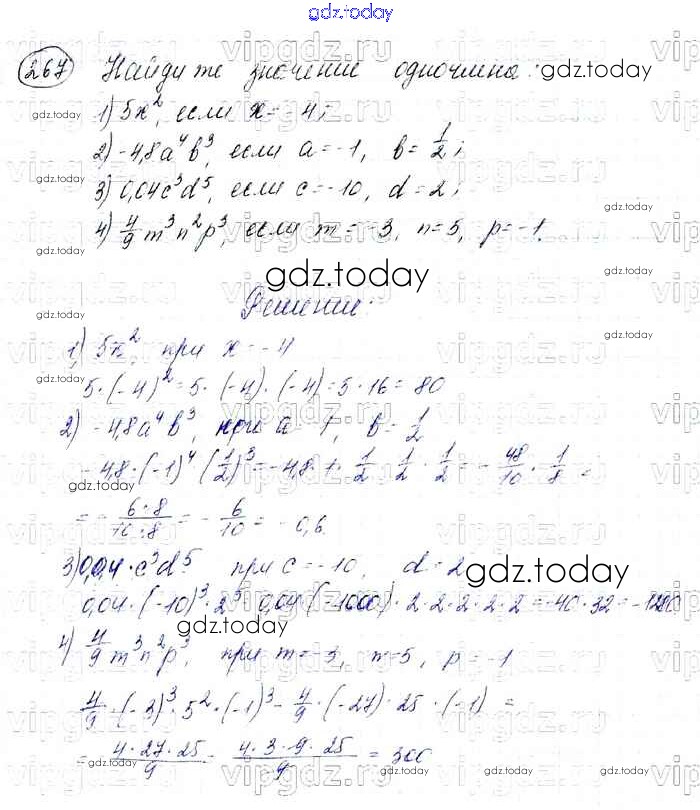 gdz.today
267 Найдите значение одночлена: gdz.today
1) 5x², если x = -4;
gdz.today
2) -4,8a⁴b³, если a = -1, b = 1/2;
3) 0,04c³d⁵, если c = -10, d = 2;
gdz.today
4) 4/9 m³n²p³, если m = -3, n = 5, p = -1.
gdz.today
gdz.today
Решение:
gdz.today
1) 5x², при x = -4
gdz.today
5·(-4)² = 5·(-4)·(-4) = 5·16 = 80
2) -4,8a⁴b³, при a = -1, b = 1/2
-4,8·(-1)⁴(1/2)³ = -4,8·1·1/2·1/2·1/2 = -48/10·1/8 =
gdz.today
gdz.today
= -6·8/10·8 = -6/10 = -0,6.
3) 0,04·c³d⁵ при c = -10, d = 2
gdz.today
0,04·(-10)³·2⁵ 0,04(-1000)·2·2·2·2·2 = -40·32 = -1280
gdz.today
4) 4/9 m³n²p³, при m = -3, n = 5, p = -1
gdz.today
4/9·(-3)³·5²·(-1)³ = 4/9·(-27)·25·(-1) =
= 4·27·25/9 = 4·3·9·25/9 = 300
gdz.today
vipgdz.ru